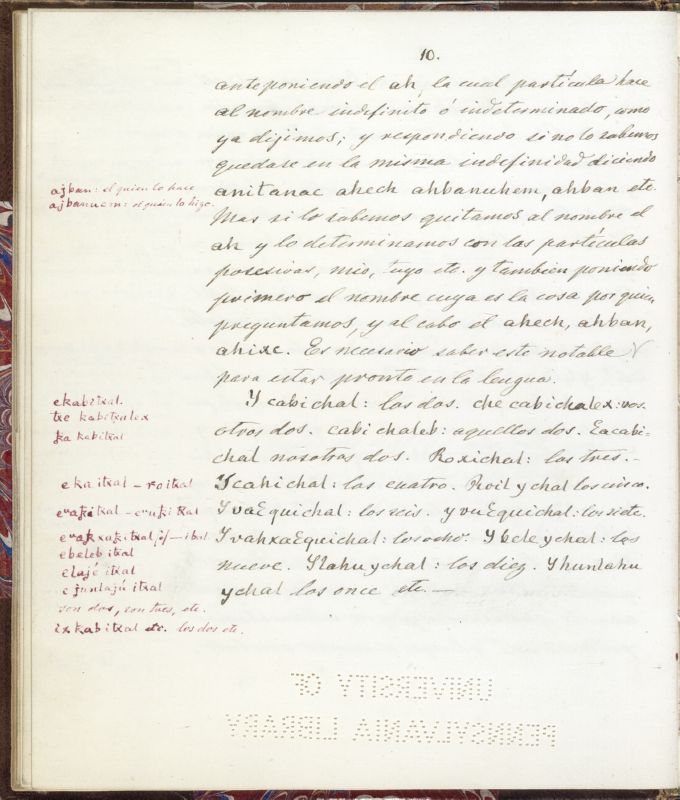 10.
anteponiendo el ah, la cual partícula hace
al nombre indefinito ó indeterminado, como
ya dijimos; y respondiendo si no lo sabemos
quedase en la misma indefinidad diciendo
ajban: el quien lo hace
anitanac ahech ahbanuhem, ahban etc.
ajbanuem: el quien lo hizo.
Mas si lo sabemos quitamos al nombre el
ah y lo determinamos con las partículas
posesivas, mio, tuyo etc. y tambien poniendo
primero el nombre cuya es la cosa por quien
preguntamos, y al cabo el ahech, ahban,
ahixc. Es necesario saber este notable
para estar pronto en la lengua.
ekabitxal.
Y cabichal: los dos. che cabichalex: vos-
txe kabitxalex
otros dos. cabichaleb: aquellos dos. Eacabi-
ka kabitxal
chal nosotros dos. Roxichal: los tres.-
ekaitxal - roitxal
Ycahichal: los cuatro. Roil ychal los cinco.
YvaEquichal: los seis. y vuEquichal: los siete.
YvahxaEquichal: los ocho. Ybeleychal: los
ebelebitxal
nueve. Ylahuychal: los diez. Yhunlahu
elajé itxal
ychal los once etc. —
ejunlajú itxal
son dos, son tres, etc.
ix kabitxal etc. los dos etc.
UNIVERSITY OF
PENNSYLVANIA LIBRARY